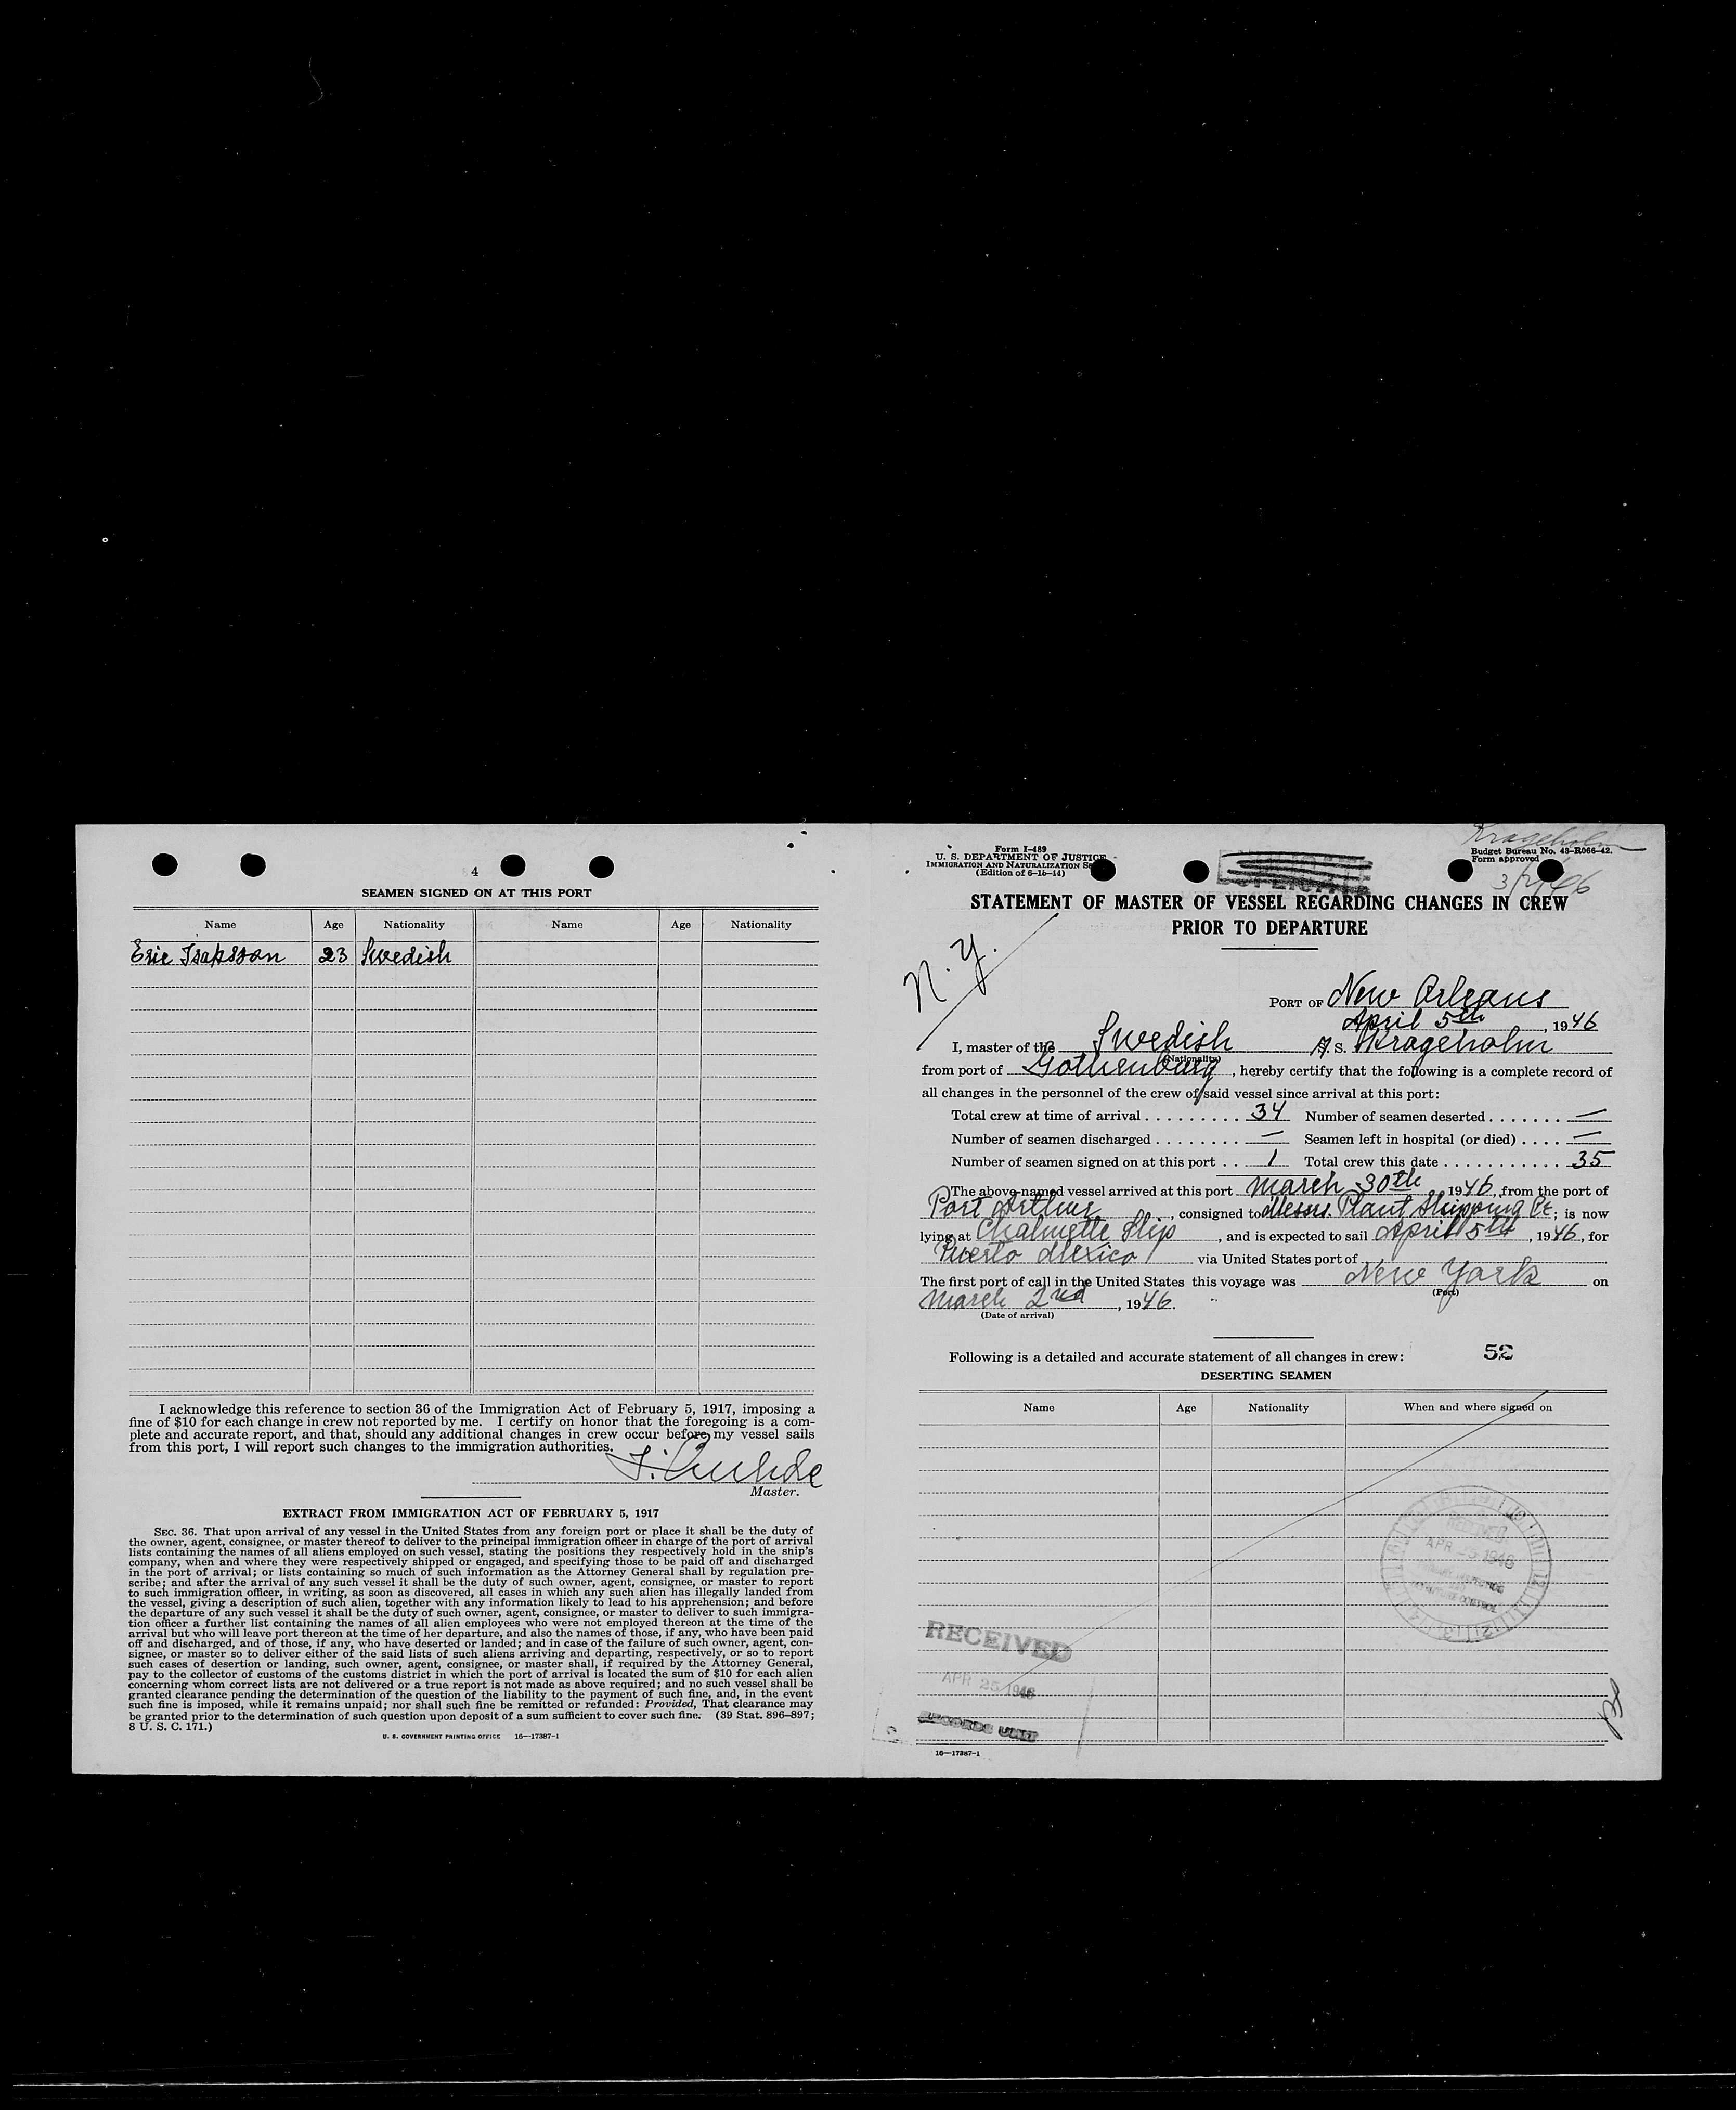 4
SEAMEN SIGNED ON AT THIS PORT
Name Age Nationality Name Age Nationality
Eric Isaksson 23 Swedish
I acknowledge this reference to section 36 of the Immigration Act of February 5, 1917, imposing a
fine of $10 for each change in crew not reported by me. I certify on honor that the foregoing is a com-
plete and accurate report, and that, should any additional changes in crew occur before my vessel sails
from this port, I will report such changes to the immigration authorities.
Master.
EXTRACT FROM IMMIGRATION ACT OF FEBRUARY 5, 1917
SEC. 36. That upon arrival of any vessel in the United States from any foreign port or place it shall be the duty of
the owner, agent, consignee, or master thereof to deliver to the principal immigration officer in charge of the port of arrival
lists containing the names of all aliens employed on such vessel, stating the positions they respectively hold in the ship's
company, when and where they were respectively shipped or engaged, and specifying those to be paid off and discharged
in the port of arrival; or lists containing so much of such information as the Attorney General shall by regulation pre-
scribe; and after the arrival of any such vessel it shall be the duty of such owner, agent, consignee, or master to report
to such immigration officer, in writing, as soon as discovered, all cases in which any such alien has illegally landed from
the vessel, giving a description of such alien, together with any information likely to lead to his apprehension; and before
the departure of any such vessel it shall be the duty of such owner, agent, consignee, or master to deliver to such immigra-
tion officer a further list containing the names of all alien employees who were not employed thereon at the time of the
arrival but who will leave port thereon at the time of her departure, and also the names of those, if any, who have been paid
off and discharged, and of those, if any, who have deserted or landed; and in case of the failure of such owner, agent, con-
signee, or master so to deliver either of the said lists of such aliens arriving and departing, respectively, or so to report
such cases of desertion or landing, such owner, agent, consignee, or master shall, if required by the Attorney General,
pay to the collector of customs of the customs district in which the port of arrival is located the sum of $10 for each alien
concerning whom correct lists are not delivered or a true report is not made as above required; and no such vessel shall be
granted clearance pending the determination of the question of the liability to the payment of such fine, and, in the event
such fine is imposed, while it remains unpaid; nor shall such fine be remitted or refunded: Provided, That clearance may
be granted prior to the determination of such question upon deposit of a sum sufficient to cover such fine. (39 Stat. 896–897;
8 U. S. C. 171.)
U. S. GOVERNMENT PRINTING OFFICE 16—17387-1
Form I-489
U. S. DEPARTMENT OF JUSTICE
IMMIGRATION AND NATURALIZATION
(Edition of 6-15-44)
Krageholm
Budget Bureau No. 43-R066-42.
Form approved
3/2/46
STATEMENT OF MASTER OF VESSEL REGARDING CHANGES IN CREW
PRIOR TO DEPARTURE
N.Y.
PORT OF New Orleans
April 5th, 1946
I, master of the Swedish S. S. Krageholm
(Nationality)
from port of Gothenburg, hereby certify that the following is a complete record of
all changes in the personnel of the crew of said vessel since arrival at this port:
Total crew at time of arrival . . . . . . . . . 34 Number of seamen deserted . . . . . . . —
Number of seamen discharged . . . . . . . . — Seamen left in hospital (or died) . . . . —
Number of seamen signed on at this port . . 1 Total crew this date . . . . . . . . . . . . 35
The above-named vessel arrived at this port March 30th, 1946, from the port of
Port Arthur, consigned to Messrs. Plant Shipping Co; is now
lying at Chalmette Slip, and is expected to sail April 5th, 1946, for
Puerto Mexico via United States port of
The first port of call in the United States this voyage was New York on
(Port)
March 2nd, 1946.
(Date of arrival)
Following is a detailed and accurate statement of all changes in crew: 52
DESERTING SEAMEN
Name Age Nationality When and where signed on
APR 25 1946
RECEIVED
APR 25 1946
RECORDS UNIT
16—17387-1